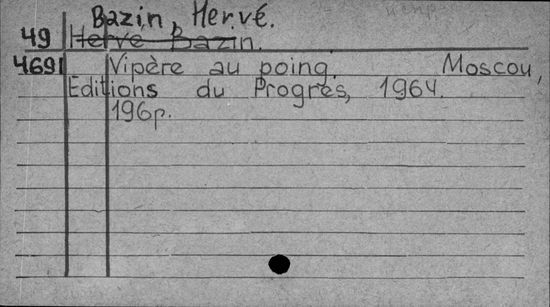 Bazin, Hervé.
49 Hervé Bazin.
4691 Vipère au poing. Moscou,
Editions du Progrès, 1964.
196p.